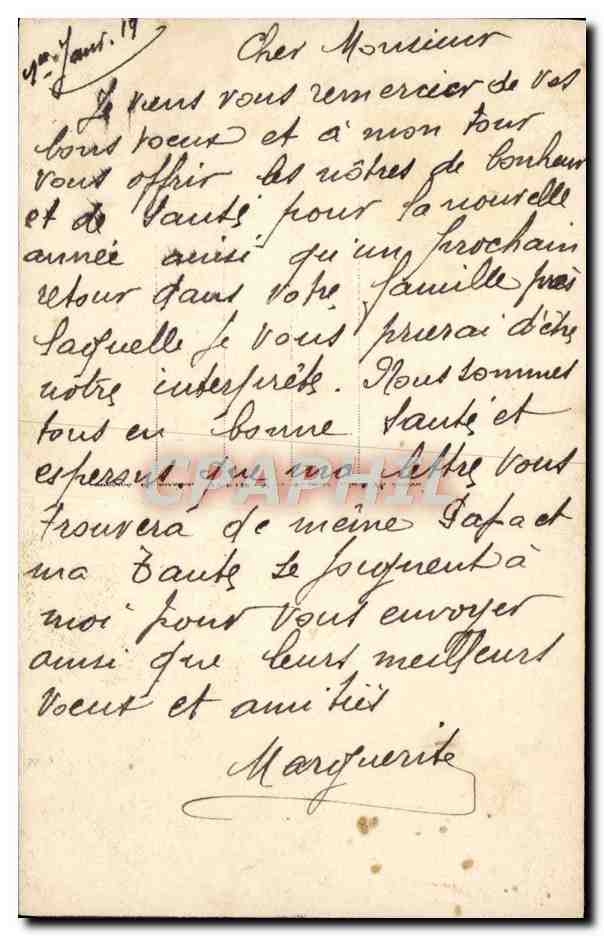 1er Janv. 19
Cher Monsieur
Je viens vous remercier de vos
bons voeux et à mon tour
vous offrir les nôtres de bonheur
et de santé pour la nouvelle
année ainsi qu'un prochain
retour dans votre famille près
laquelle je vous prierai d'être
notre interprète. Nous sommes
tous en bonne santé et
esperons que ma lettre vous
trouvera de même Papa et
ma Tante se joignent à
moi pour vous envoyer
ainsi que leurs meilleurs
voeux et amitiés
Marguerite
CPAPHIL